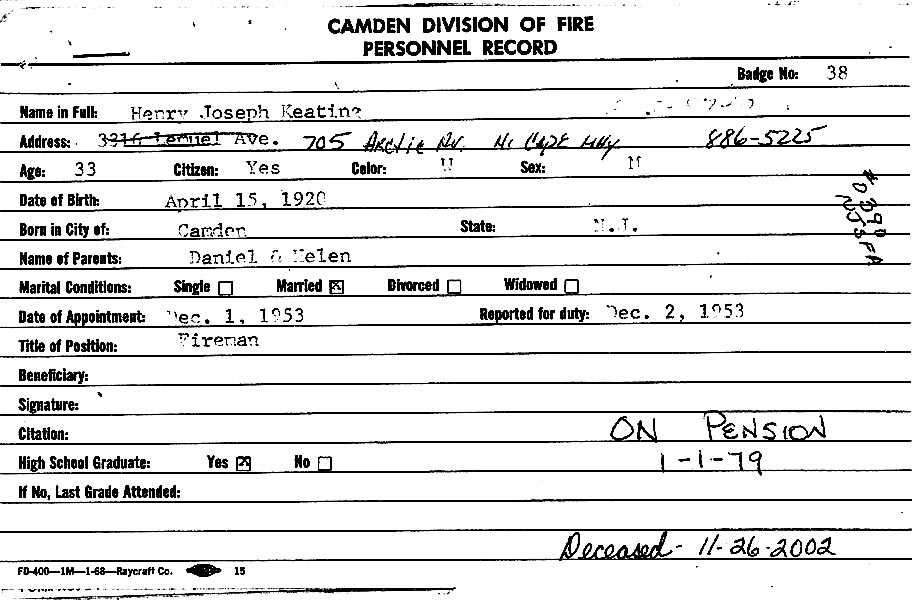 CAMDEN DIVISION OF FIRE
PERSONNEL RECORD
Badge No: 38
Name in Full: Henry Joseph Keating
Address: 3216 Lemuel Ave. 705 Arctic Av. N. CAPE MAY 886-5225
Age: 33 Citizen: Yes Color: W Sex: M
# 0390
NJSFA
Date of Birth: April 15, 1920
Born in City of: Camden State: N.J.
Name of Parents: Daniel & Helen
Marital Conditions: Single Married Divorced Widowed
Date of Appointment: Dec. 1, 1953 Reported for duty: Dec. 2, 1953
Title of Position: Fireman
Beneficiary:
Signature:
Citation: ON PENSION
High School Graduate: Yes No 1-1-79
If No, Last Grade Attended:
Deceased - 11-26-2002
FD-400—1M—1-68—Raycraft Co. 15